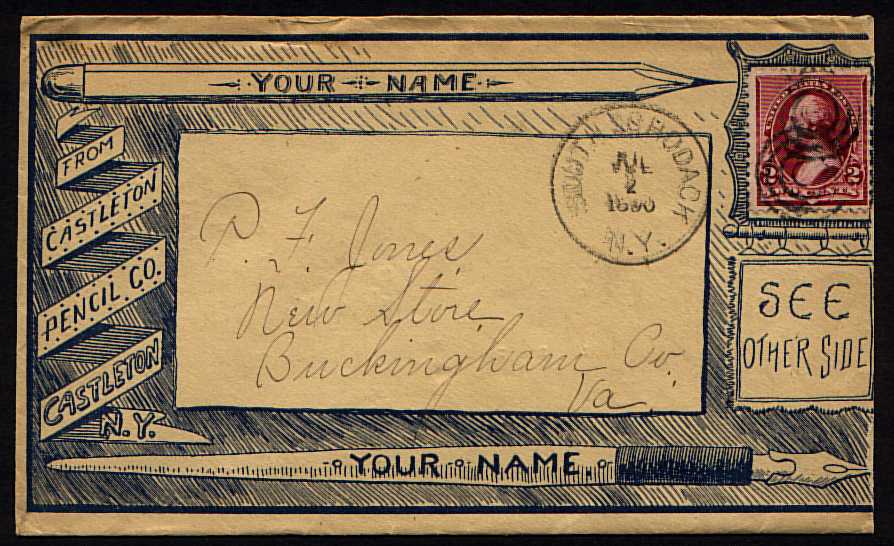 YOUR NAME
FROM
CASTLETON
PENCIL CO.
CASTLETON
N.Y.
P. F. Jones
New Store
Buckingham Co.
Va.
JUL
2
1890
N.Y.
2 2
SEE
OTHER SIDE
YOUR NAME